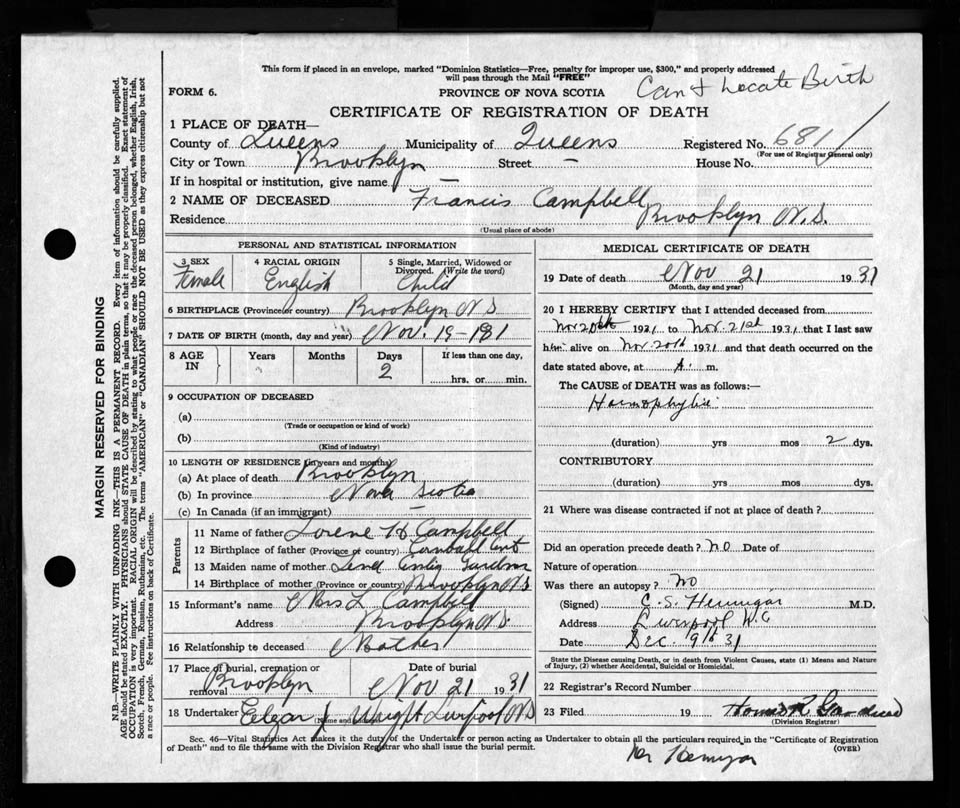 This form if placed in an envelope, marked "Dominion Statistics—Free, penalty for improper use, $300," and properly addressed
will pass through the Mail "FREE"
FORM 6.
PROVINCE OF NOVA SCOTIA
Can't Locate Birth
CERTIFICATE OF REGISTRATION OF DEATH
1 PLACE OF DEATH—
County of Queens Municipality of Queens Registered No. 681
(For use of Registrar General only)
City or Town Brooklyn Street — House No.
If in hospital or institution, give name —
2 NAME OF DECEASED Francis Campbell
Residence Brooklyn N.S.
(Usual place of abode)
PERSONAL AND STATISTICAL INFORMATION
3 SEX
Female
4 RACIAL ORIGIN
English
5 Single, Married, Widowed or
Divorced. (Write the word)
Child
6 BIRTHPLACE (Province or country) Brooklyn N S
7 DATE OF BIRTH (month, day and year) Nov. 19-
8 AGE
IN
Years Months Days If less than one day,
2 hrs. or min.
9 OCCUPATION OF DECEASED
(a)
(Trade or occupation or kind of work)
(b)
(Kind of industry)
10 LENGTH OF RESIDENCE (in years and months)
(a) At place of death Brooklyn
(b) In province Nova Scotia
(c) In Canada (if an immigrant) —
Parents
11 Name of father H Campbell
12 Birthplace of father (Province or country)
13 Maiden name of mother
14 Birthplace of mother (Province or country) Brooklyn N S
15 Informant's name Mrs L Campbell
Address Brooklyn N S.
16 Relationship to deceased Mother
17 Place of burial, cremation or
removal Brooklyn
Date of burial
Nov 21 1931
18 Undertaker Edgar J Wright Liverpool N S
(Name and address)
MEDICAL CERTIFICATE OF DEATH
19 Date of death Nov 21 1931
(Month, day and year)
20 I HEREBY CERTIFY that I attended deceased from
Nov 20th 1931 to Nov. 21st 1931 that I last saw
h alive on Nov. 20th 1931 and that death occurred on the
date stated above, at A. m.
The CAUSE of DEATH was as follows:—
Haemophylia
(duration) yrs mos 2 dys.
CONTRIBUTORY
(duration) yrs mos dys.
21 Where was disease contracted if not at place of death?
Did an operation precede death? no Date of
Nature of operation
Was there an autopsy? no
(Signed) C. S. Hennigar M.D.
Address Liverpool
Date Dec. 9th 31
State the Disease causing Death, or in death from Violent Causes, state (1) Means and Nature
of Injury, (2) whether Accidental, Suicidal or Homicidal.
22 Registrar's Record Number
23 Filed 19
(Division Registrar)
Sec. 46—Vital Statistics Act makes it the duty of the Undertaker or person acting as Undertaker to obtain all the particulars required in the "Certificate of Registration
of Death" and to file the same with the Division Registrar who shall issue the burial permit.
(OVER)
MARGIN RESERVED FOR BINDING
N.B.—WRITE PLAINLY WITH UNFADING INK—THIS IS A PERMANENT RECORD. Every item of information should be carefully supplied.
AGE should be stated EXACTLY. PHYSICIANS should STATE CAUSE OF DEATH in plain terms, so that it may be properly classified. Exact statement of
OCCUPATION is very important. RACIAL ORIGIN will be described by stating to what people or race the deceased person belonged, whether English, Irish,
Scotch, French, German, Russian, Ruthenian, etc. The terms "AMERICAN" or "CANADIAN" SHOULD NOT BE USED as they express citizenship but not
a race or people. See instructions on back of Certificate.